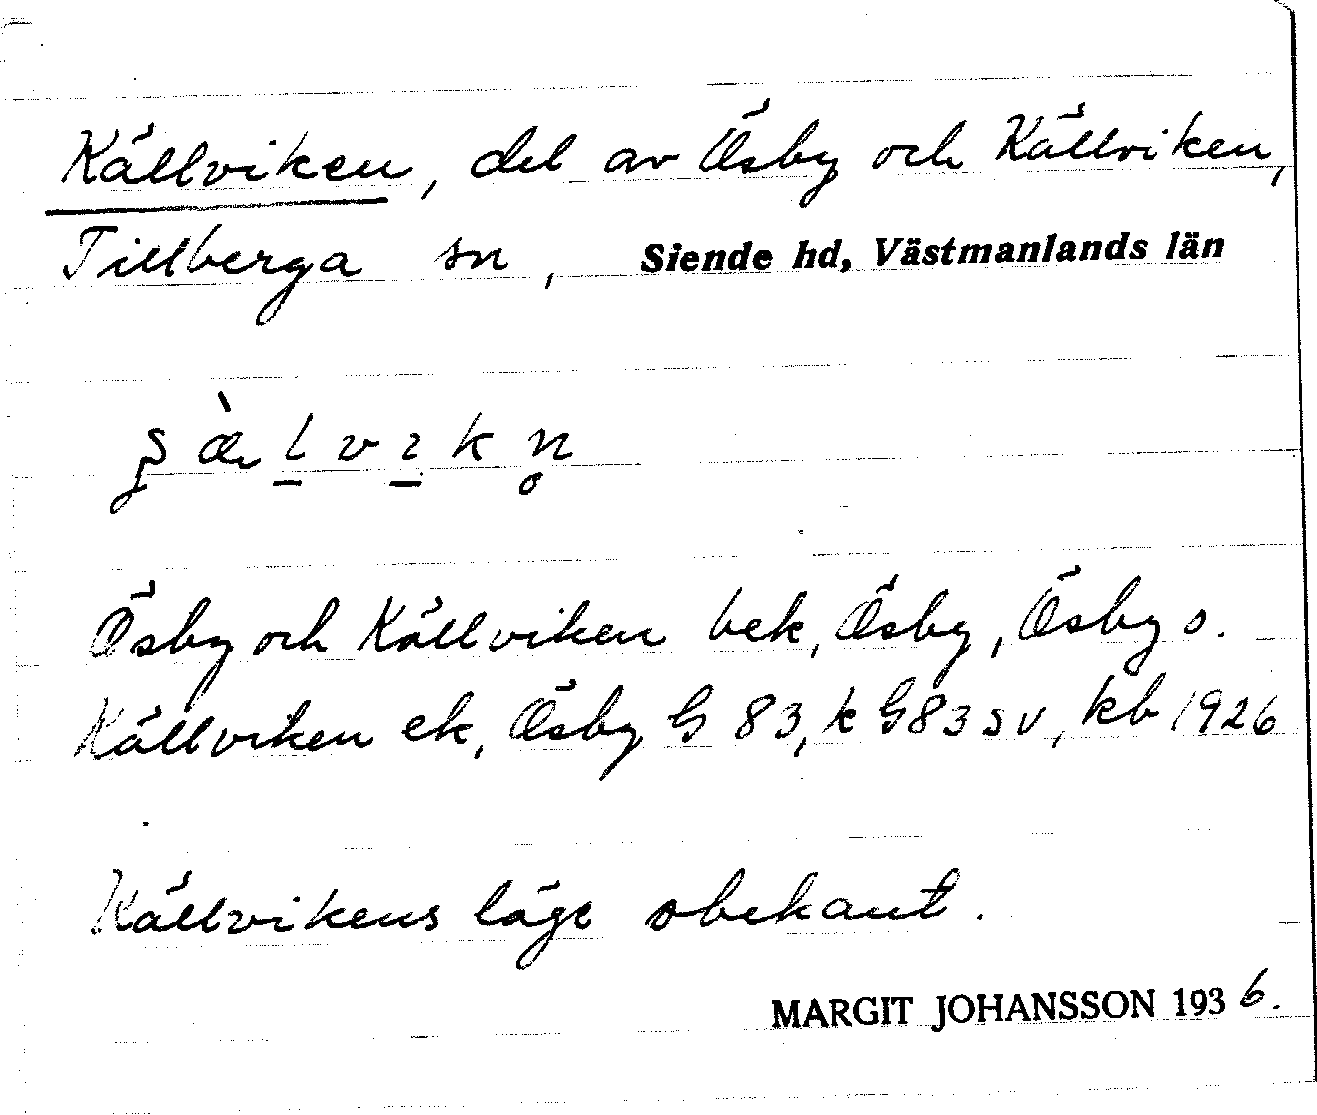 Källviken, del av Ösby och Källviken,
Tillberga sn, Siende hd, Västmanlands län
Ösby och Källviken bek, Ösby, Ösby s.
Källviken ek, Ösby G 83, k G 83 sv, kb 1926
Källvikens läge obekant.
MARGIT JOHANSSON 1936.